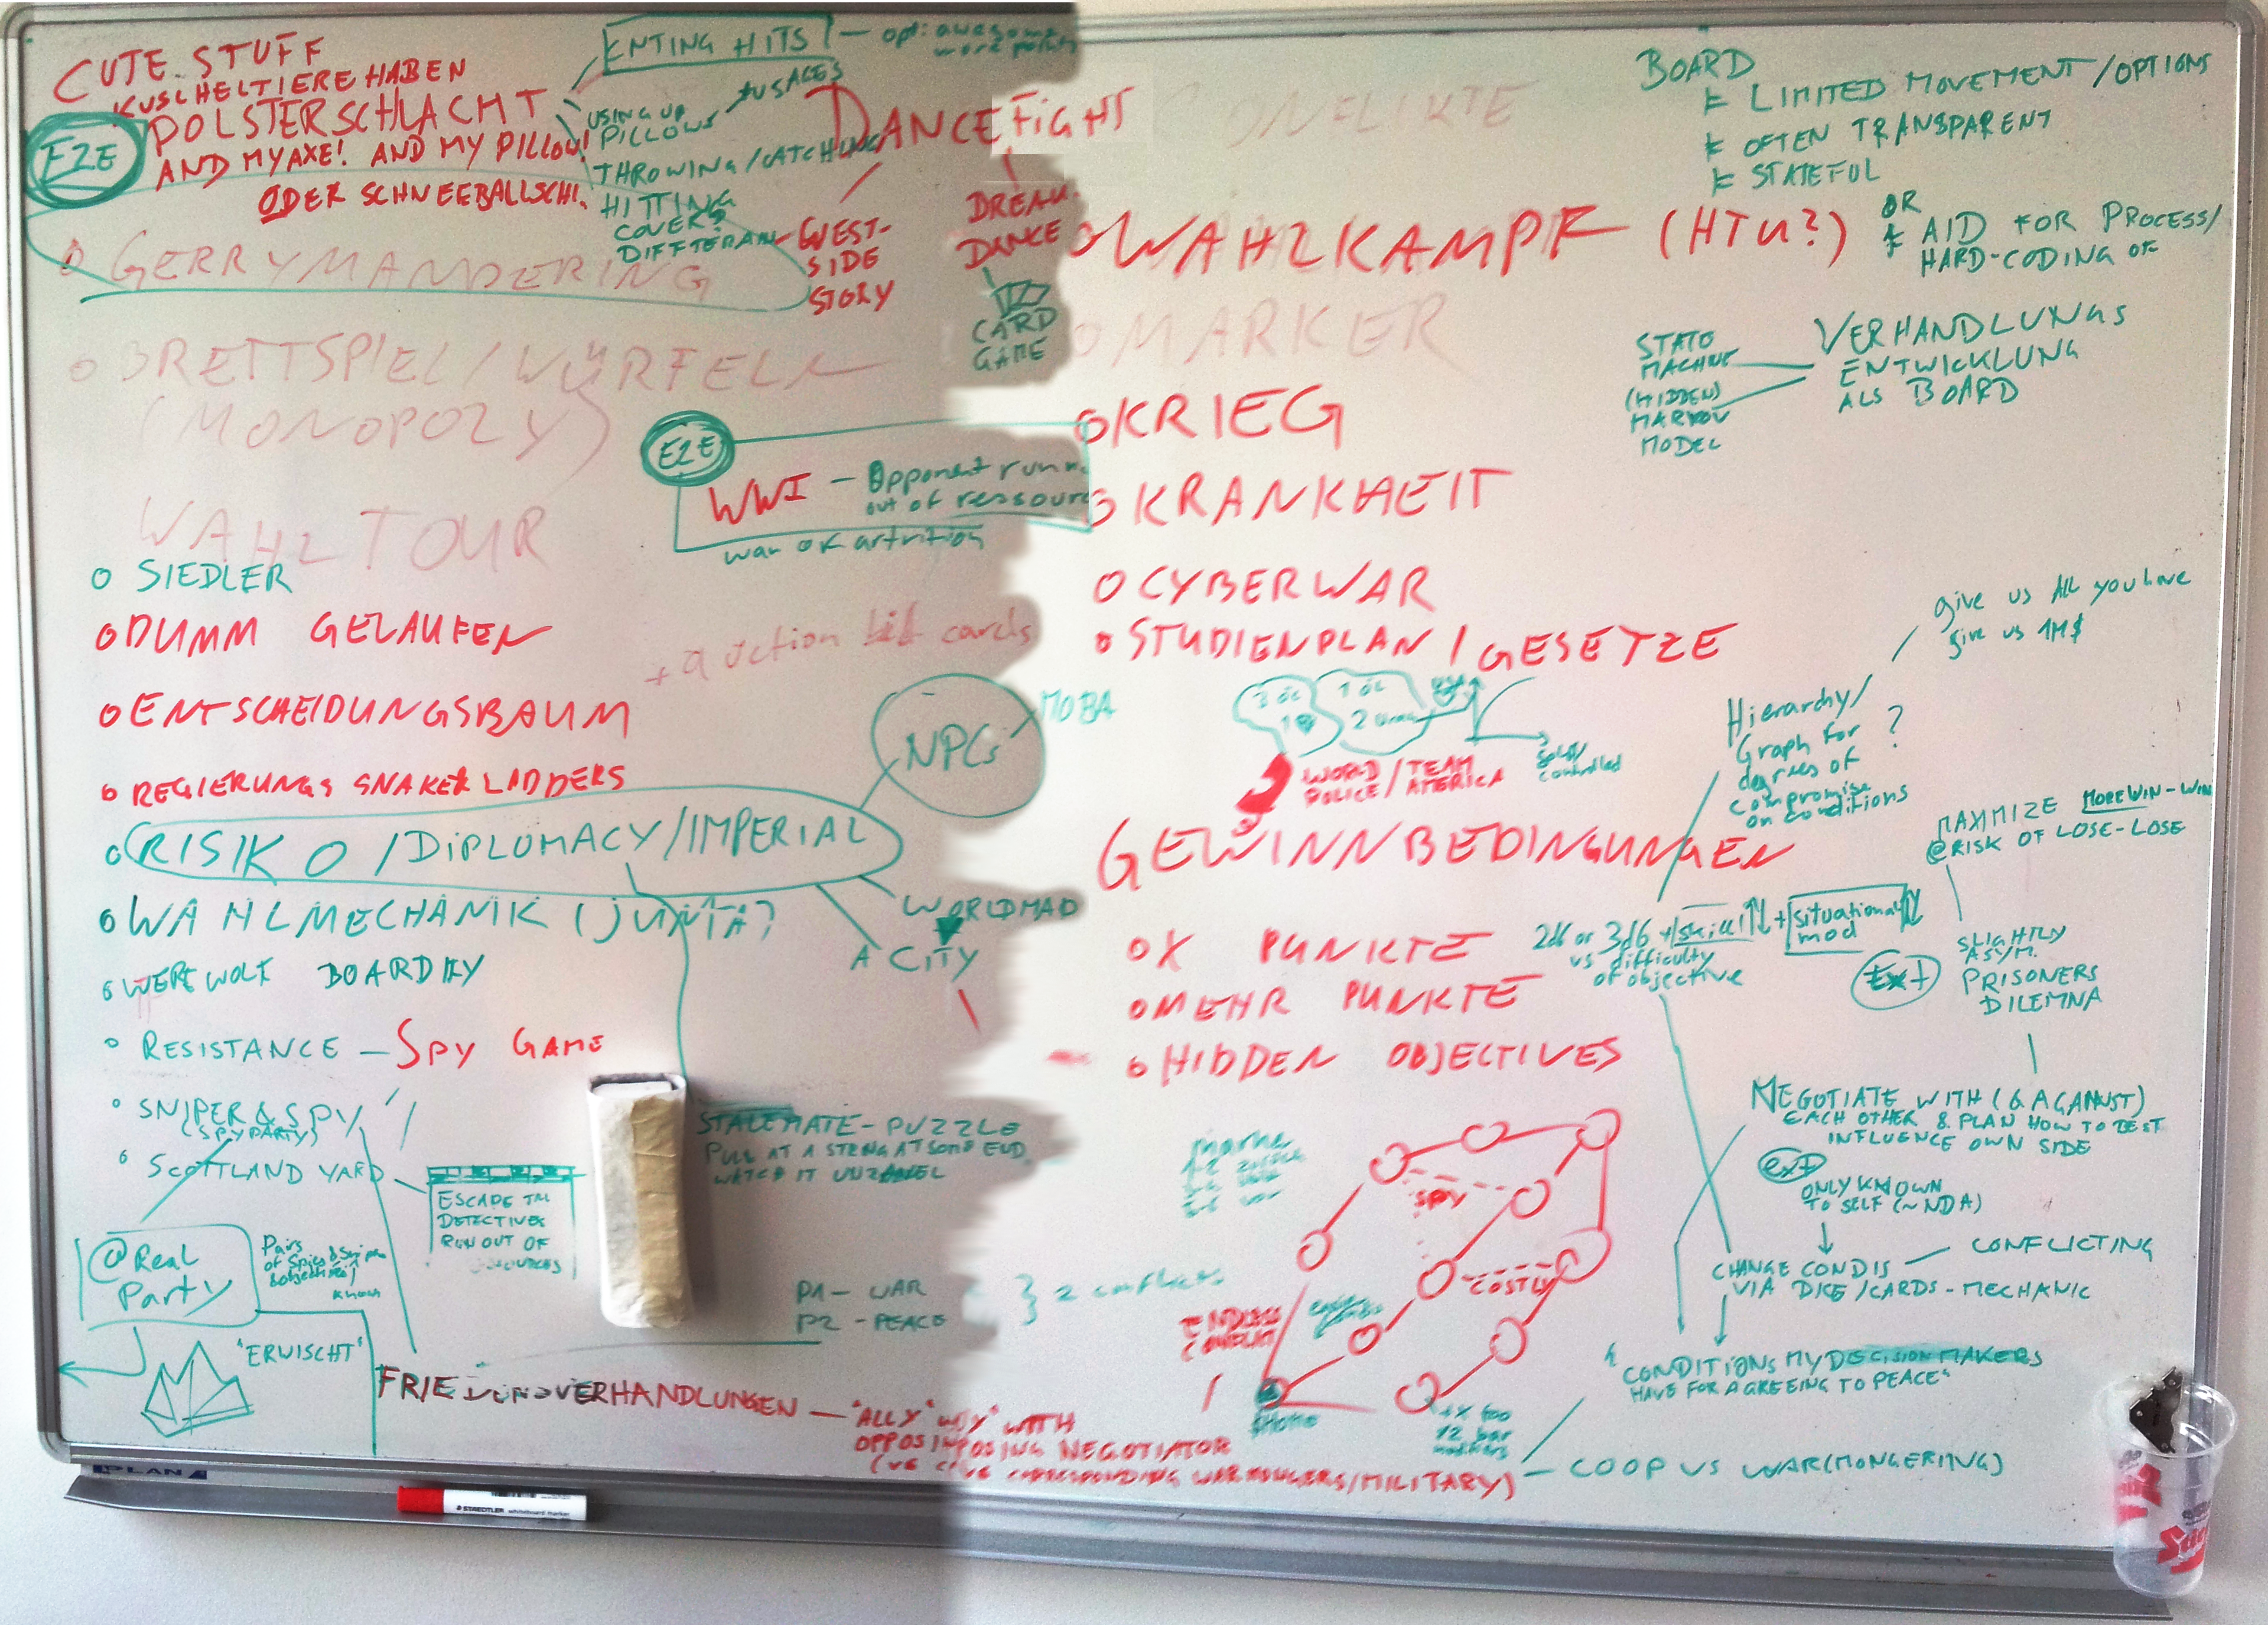 CUTE STUFF
KUSCHELTIERE HABEN
POLSTERSCHLACHT
AND MY AXE! AND MY PILLOW!
ODER SCHNEEBALLSCHL.
EZE
ENTING HITS
USING UP
PILLOWS
THROWING/CATCHING
HITTING
COVER?
DANCE FIGHT
WEST-
SIDE
STORY
DANCE
CARD
GAME
GERRYMANDERING
BRETTSPIEL/WÜRFELN
(MONOPOLY)
WAHLTOUR
EZE
WWI - Opponent run
out of ressour
war of attrition
O SIEDLER
O DUMM GELAUFEN
+ auction cards
O ENTSCHEIDUNGSBAUM
O REGIERUNGS SNAKE & LADDERS
NPCs
MOBA
O RISIKO/DIPLOMACY/IMPERIAL
WORLDMAP
A CITY
O WAHLMECHANIK (JUNTA?
O WEREWOLF
O RESISTANCE - SPY GAME
O SNIPER & SPY
(SPYPARTY)
O SCOTTLAND YARD
ESCAPE
DETECTIVES
RUN OUT OF
@Real
Party
Pairs
of Spies & Snipers
know
"ERWISCHT"
STALEMATE - PUZZLE
PULL AT A STRING AT SOME END,
WATCH IT
P1 - WAR
P2 - PEACE
} 2 conflicts
FRIEDENSVERHANDLUNGEN - "ALLY" WITH
NEGOTIATOR
CORRESPONDING WARMONGERS/MILITARY) - COOP VS WAR(MONGERING)
KONFLIKTE
O WAHLKAMPF (HTU?)
O MARKER
O KRIEG
O KRANKHEIT
O CYBERWAR
O STUDIENPLAN / GESETZE
WORLD / TEAM
POLICE / AMERICA
controlled
GEWINNBEDINGUNGEN
O X PUNKTE
O MEHR PUNKTE
O HIDDEN OBJECTIVES
SPY
COSTLY
ENDLESS
CONFLICT
Home
BOARD
LIMITED MOVEMENT/OPTIONS
OFTEN TRANSPARENT
STATEFUL
OR
AID FOR PROCESS/
HARD-CODING OF
STATE
MACHINE
(HIDDEN)
MARKOV
MODEL
VERHANDLUNGS
ENTWICKLUNG
ALS BOARD
give us All you have
give us 1M$
Hierarchy/
Graph for
degrees of
compromise
on conditions
?
MAXIMIZE MORE WIN-WIN
@RISK OF LOSE-LOSE
2d6 or 3d6 + skill + situational
mod
vs difficulty
of objective
Ext
SLIGHTLY
ASYM.
PRISONERS
DILEMNA
NEGOTIATE WITH (& AGAINST)
EACH OTHER & PLAN HOW TO BEST
INFLUENCE OWN SIDE
ext
ONLY KNOWN
TO SELF (~NDA)
CHANGE CONDIS - CONFLICTING
VIA DICE/CARDS - MECHANIC
"CONDITIONS MY DECISION MAKERS
HAVE FOR AGREEING TO PEACE"
PLAN
STAEDTLER whiteboard marker